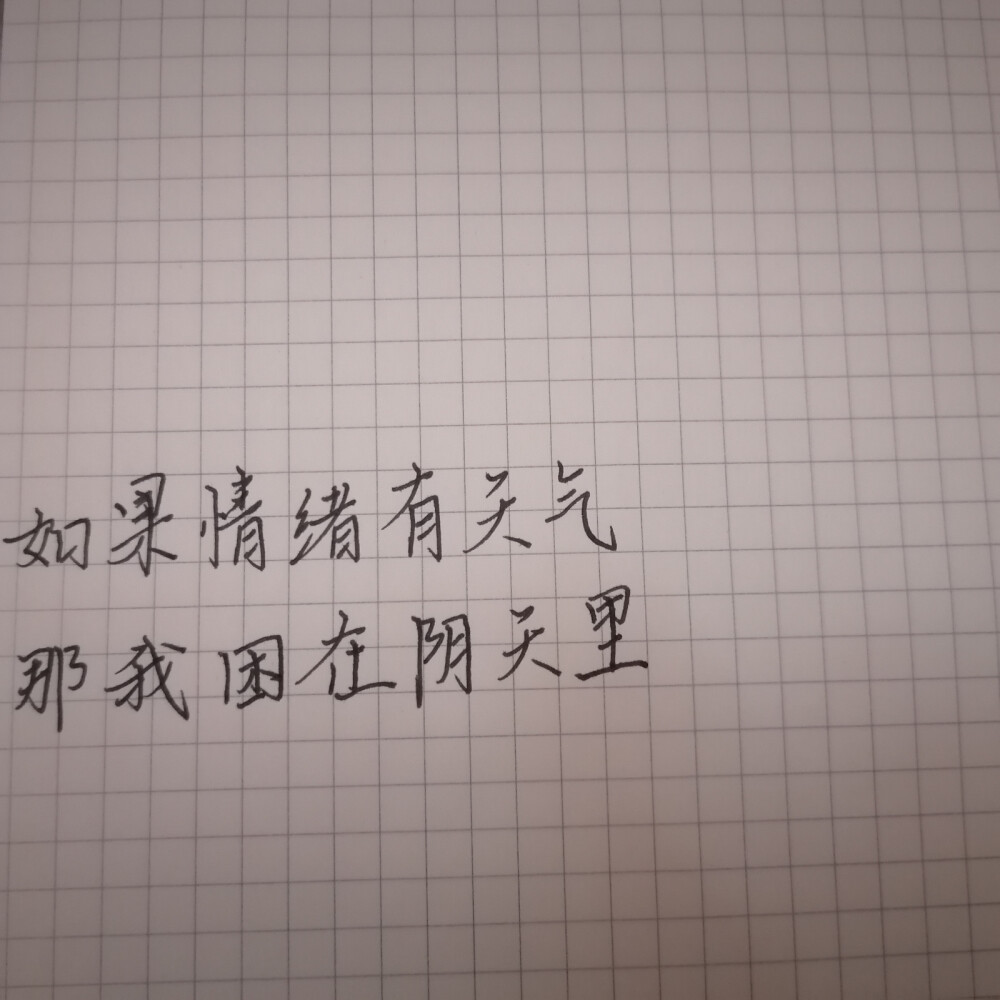 如果情绪有天气
那我困在阴天里